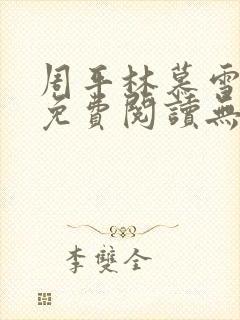 周平林慕雪
免費閱讀無
李雙全